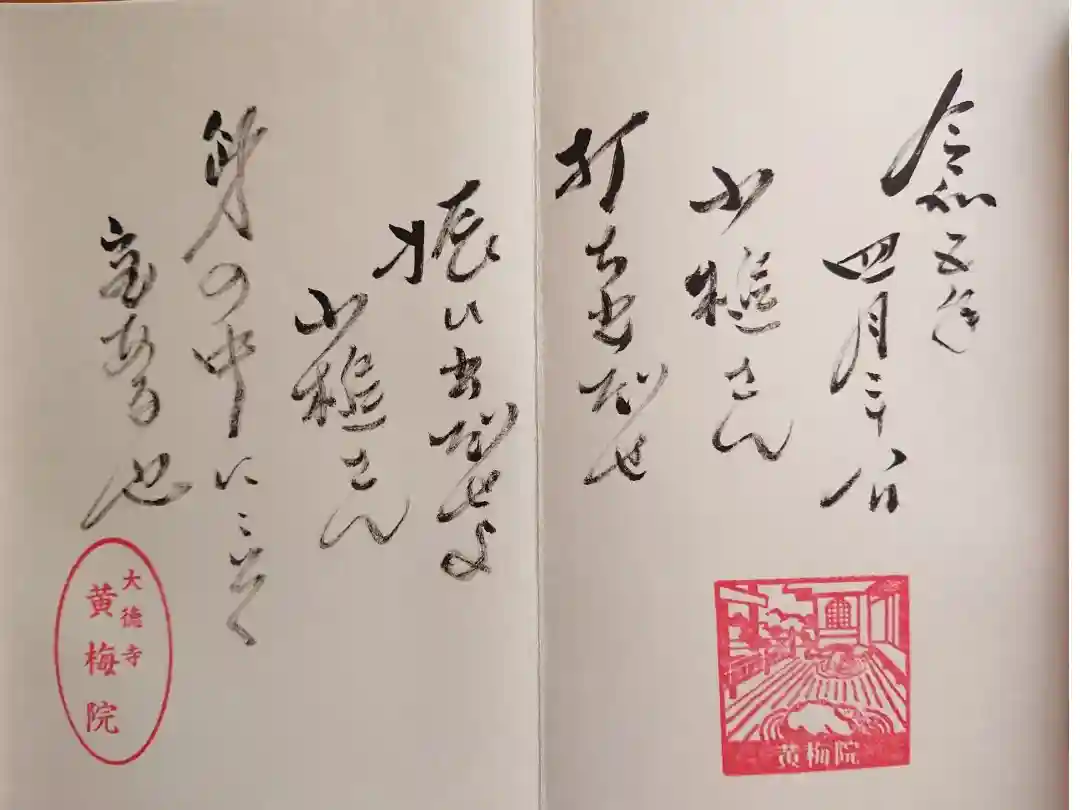 令和五年
四月二十八日
小槌さん
打ち出だせ
振い出だせよ
小槌さん
身の中に
宝ある也
大徳寺
黄梅院
黄梅院